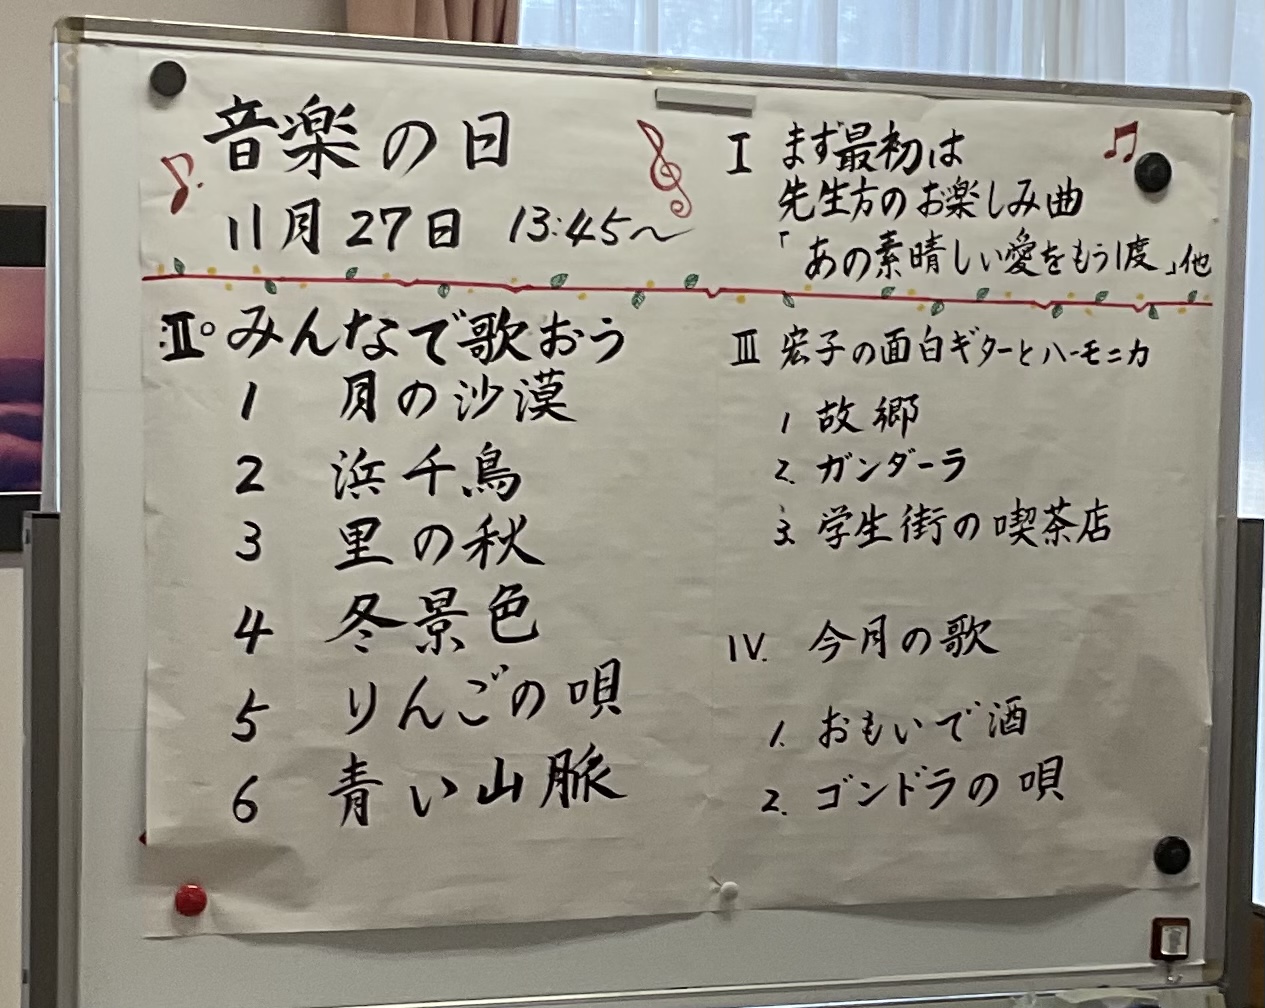 音楽の日
11月27日 13:45~
I まず最初は
先生方のお楽しみ曲
「あの素晴しい愛をもう1度」他
II。みんなで歌おう
1 月の沙漠
2 浜千鳥
3 里の秋
4 冬景色
5 りんごの唄
6 青い山脈
III 宏子の面白ギターとハーモニカ
1 故郷
2. ガンダーラ
3. 学生街の喫茶店
IV. 今月の歌
1. おもいで酒
2. ゴンドラの唄